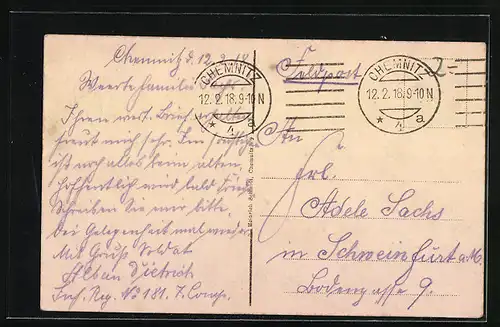 Chemnitz d. 12.2.18.
Werte Familie
Ihren wert. Brief erhalten
freut mich sehr. Im
ist noch alles beim alten
hoffentlich wird bald
Schreiben Sie mir bitte
bei Gelegenheit mal wieder
Mit Gruß Soldat
Alban Dittrich
Inf. Reg. No 181. 7. Comp.
Feldpost
CHEMNITZ
12.2.18.9-10N
* 4 a
CHEMNITZ
12.2.18.9-10N
* 4 a
2
An
Frl.
Adele Sachs
in Schweinfurt a.M.
Bodengasse 9.